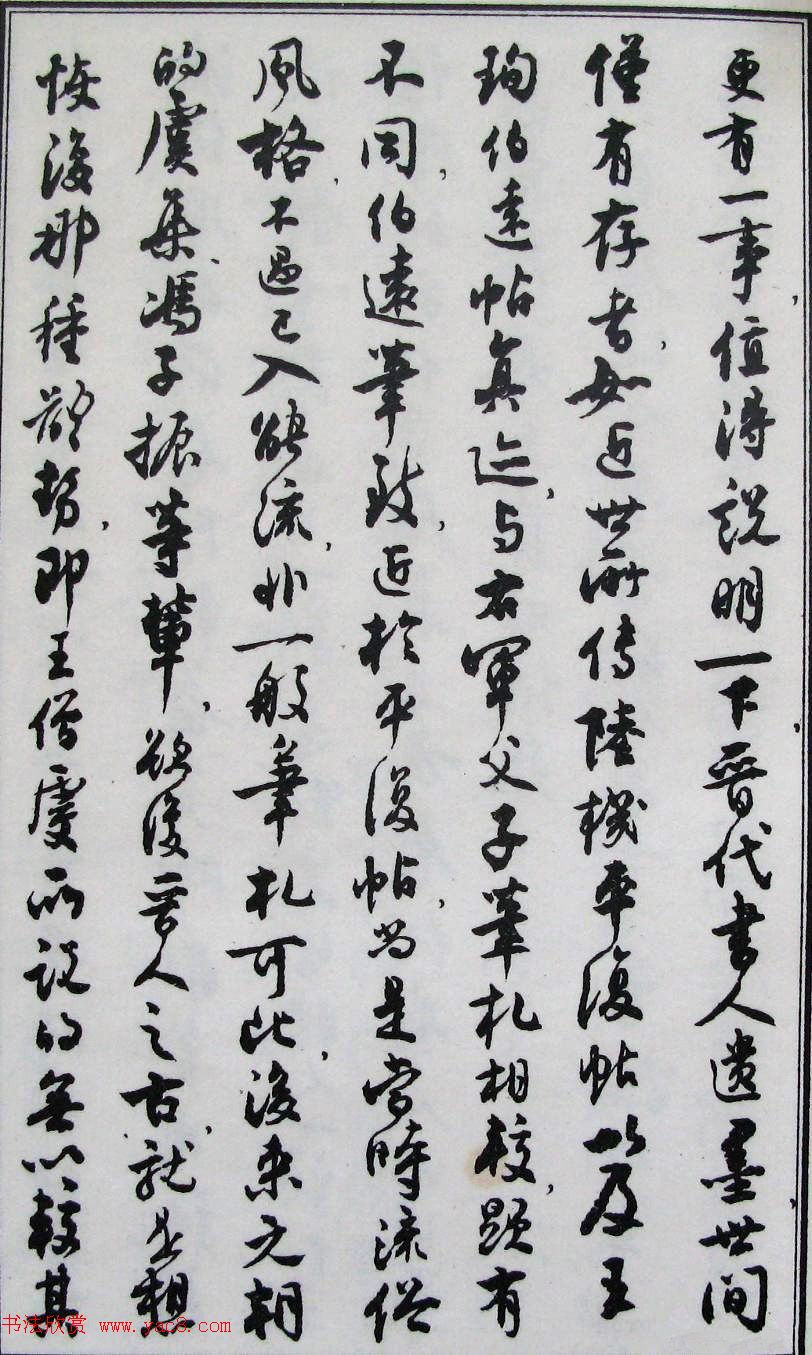 更有一事，值得説明一下，晉代書人遺墨，世間
僅有存者，如近世所傳陸機平復帖以及王
珣伯遠帖真迹，与右軍父子筆札相較，顯有
不同，伯遠筆致，近於平復帖，尚是當時流俗
風格，不過已入能流，非一般筆札可比，後來元朝
的虞集馮子振等輩，欲復晉人之古，就是想
恢復那種體勢，即王僧虔所説的無以較其
书法欣赏 www.yac8.com